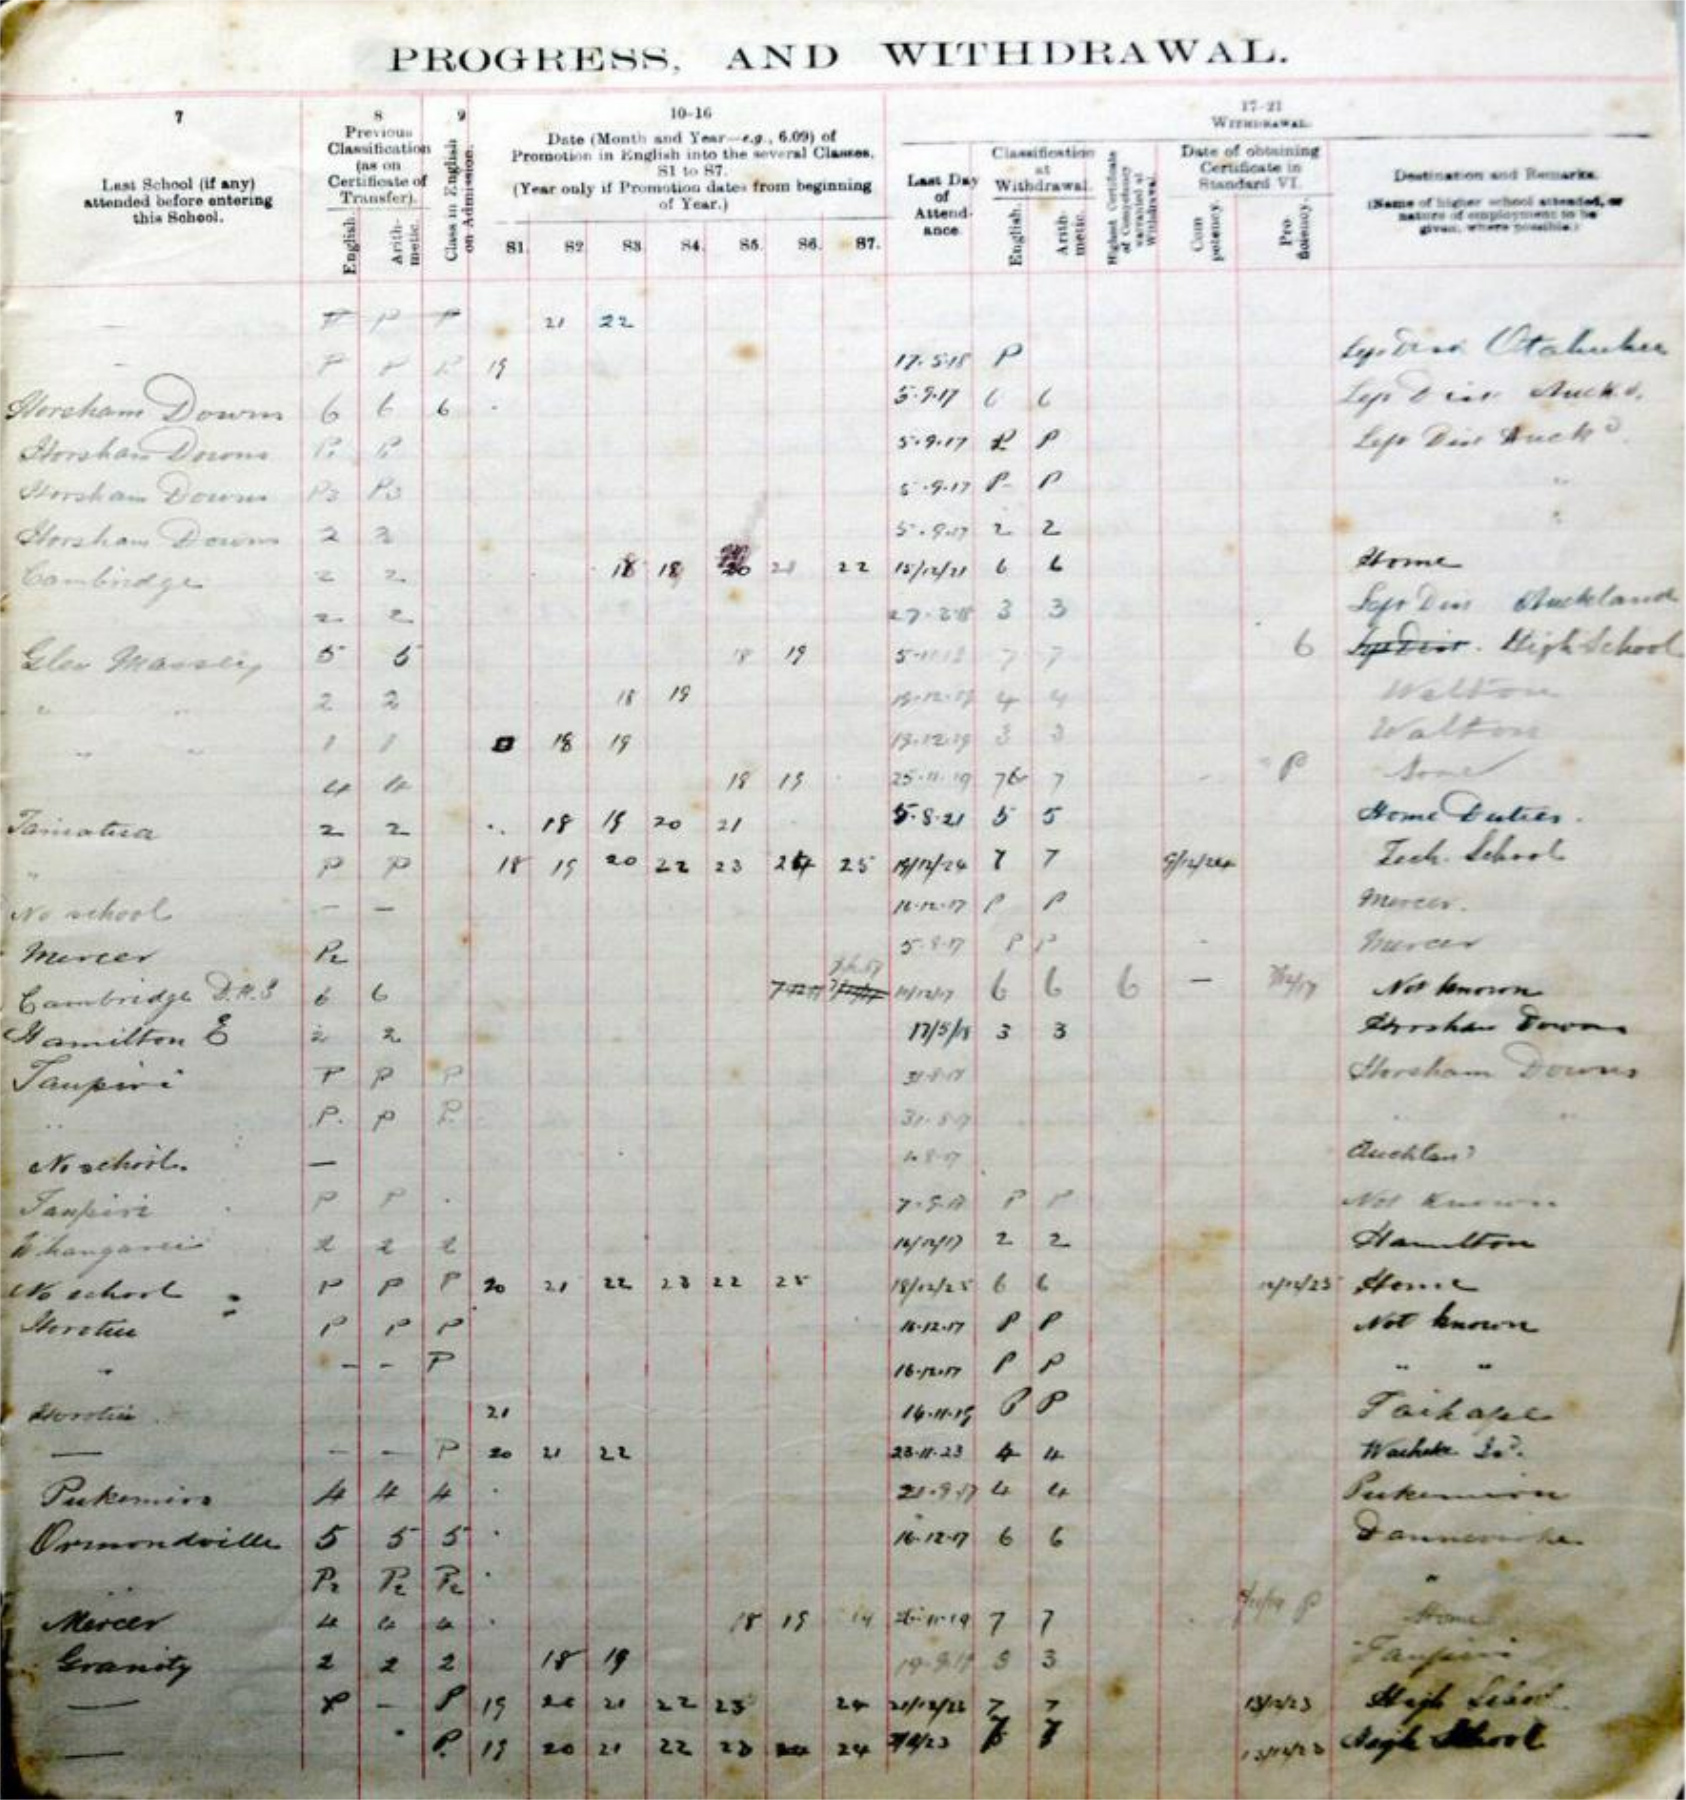 PROGRESS, AND WITHDRAWAL.
7 8 9 10-16 17-21
Last School (if any) attended before entering this School.
Previous Classification (as on Certificate of Transfer).
English. Arithmetic.
Class in English on Admission.
Date (Month and Year—e.g., 6.09) of Promotion in English into the several Classes, S1 to S7.
(Year only if Promotion dates from beginning of Year.)
S1. S2 S3. S4. S5. S6. S7.
WITHDRAWAL.
Last Day of Attendance
Classification at Withdrawal.
English. Arithmetic.
Highest Certificate of Competency warranted at Withdrawal.
Date of obtaining Certificate in Standard VI.
Competency. Proficiency.
Destination and Remarks.
(Name of higher school attended, or nature of employment to be given, where possible.)
P P P 21 22
P P P 19 17.5.18 P Otahuhu
Horsham Downs 6 6 6 5.9.17 6 6
Horsham Downs P. P 5.9.17 P P
Horsham Downs P3 P3 5.9.17 P P "
Horsham Downs 2 2 5.9.17 2 2 "
Cambridge 2 2 18 18 20 21 22 15/12/21 6 6 Home
2 2 3 3 Auckland
Glen Massey 5 5 18 19 7 7 6 High School
" " 2 2 18 19 19.12.19 4 4 Walton
" " 1 1 18 19 19.12.19 3 3 Walton
4 4 18 19 25.11.19 7 P Home
2 2 18 19 20 21 5.8.21 5 5 Home Duties.
" P P 18 19 20 22 23 24 25 19/12/24 7 7 9/12/24 Tech. School
No school — — 16.12.17 P P Mercer.
Mercer P2 5.9.17 P P Mercer
Cambridge D.H.S 6 6 6 6 6 — Not known
Hamilton E 2 2 17/5/18 3 3 Horsham Downs
Taupiri P P P Horsham Downs
" P. P P. 31.8.17 " "
No school. —
Taupiri P P P P Not known
Whangarei 2 2 2 14/12/17 2 2 Hamilton
No school P P P 20 21 22 23 22 25 18/12/25 6 6 Home
Horotiu P P P 16.12.17 P P Not known
" - - P 16.12.17 P P " "
Horotiu 21 14.11.19 P P Taihape
— - - P 20 21 22 23.11.23 4 4
Pukemiro 4 4 4 21.9.17 4 4 Pukemiro
Ormondville 5 5 5 16.12.17 6 6 Dannevirke
" P2 P2 P2 "
Mercer 4 4 4 18 19 7 7 P Home
Granity 2 2 2 18 19 3 3 Taupiri
— - P 19 20 21 22 23 24 7 7 13/12/23 High School
— P. 19 20 21 22 23 24 High School